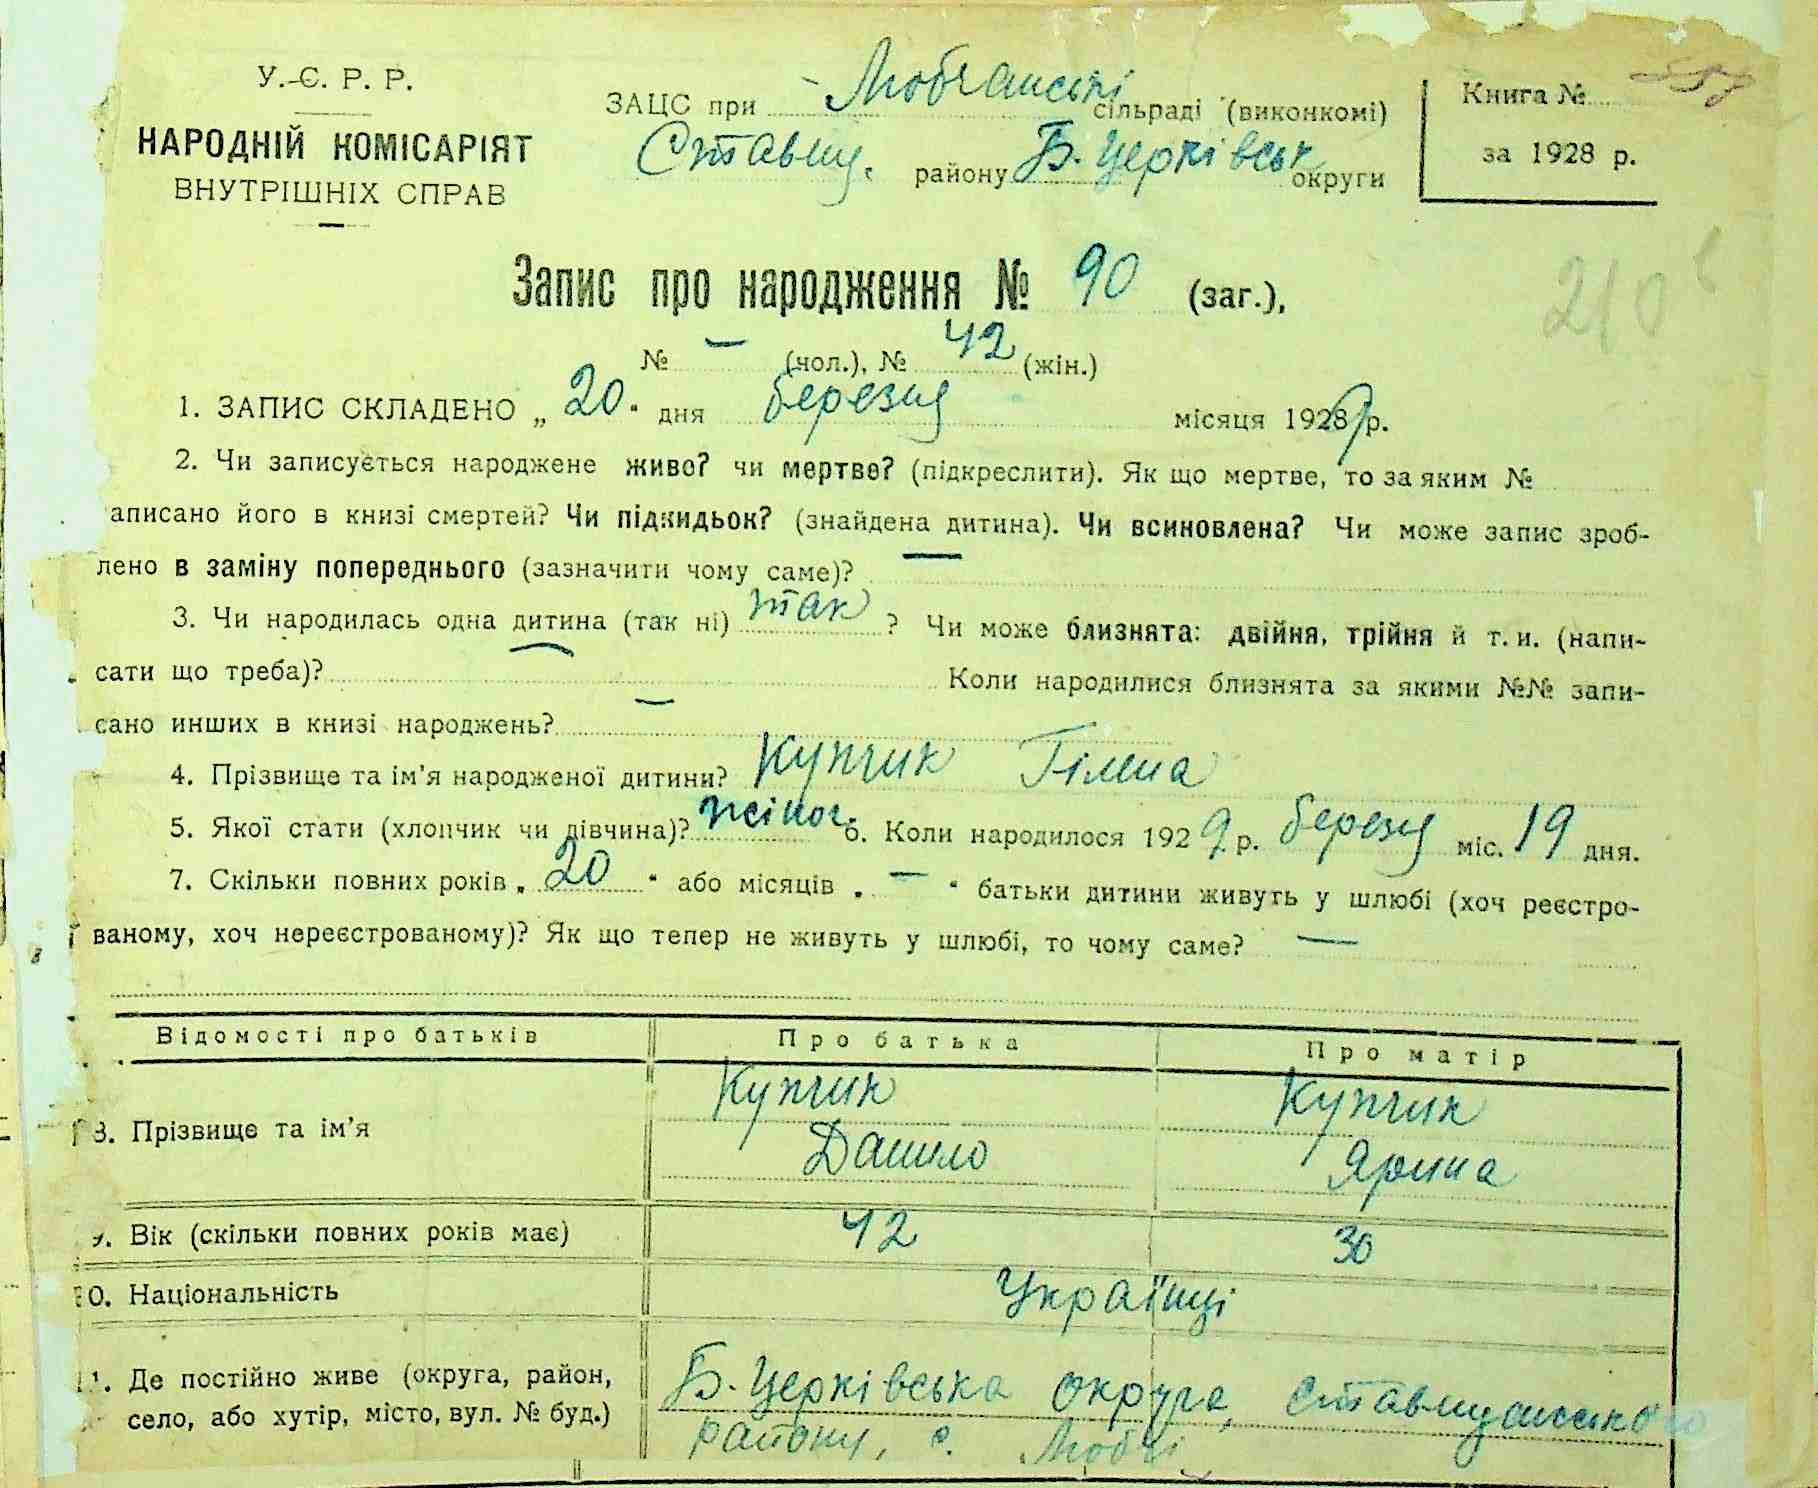 У.-С. Р. Р.
НАРОДНІЙ КОМІСАРІЯТ
ВНУТРІШНІХ СПРАВ
ЗАЦС при Любчанські сільраді (виконкомі)
Ставищ. району Б. Церківськ округи
Книга №
за 1928 р.
Запис про народження № 90 (заг.),
210
№ — (чол.), № 42 (жін.)
1. ЗАПИС СКЛАДЕНО „ 20 " дня березня місяця 1929 р.
2. Чи записується народжене живо? чи мертве? (підкреслити). Як що мертве, то за яким №
аписано його в книзі смертей? Чи підкидьок? (знайдена дитина). Чи всиновлена? Чи може запис зроб-
лено в заміну попереднього (зазначити чому саме)? —
3. Чи народилась одна дитина (так ні) так ? Чи може близнята: двійня, трійня й т. и. (напи-
сати що треба)? — Коли народилися близнята за якими №№ запи-
сано инших в книзі народжень? —
4. Прізвище та ім'я народженої дитини? Купчик Гілена
5. Якої стати (хлопчик чи дівчина)? жіноч. 6. Коли народилося 1929 р. березня міс. 19 дня.
7. Скільки повних років „ 20 " або місяців „ — " батьки дитини живуть у шлюбі (хоч реєстро-
ваному, хоч нереєстрованому)? Як що тепер не живуть у шлюбі, то чому саме? —
Відомості про батьків Про батька Про матір
8. Прізвище та ім'я Купчик Купчик
Данило Ярина
9. Вік (скільки повних років має) 42 30
0. Національність Українці
1. Де постійно живе (округа, район, Б. Церківська округа, Ставищанського
село, або хутір, місто, вул. № буд.) району, с. Любчі